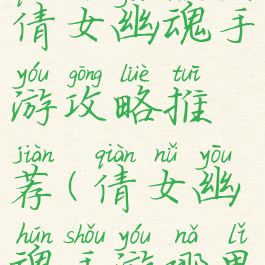 倩女幽魂手
yóu gōng lüè tuī
游攻略推
jiàn qiàn nǚ yōu
荐(倩女幽
hún shǒu yóu nǎ lǐ
魂手游哪里